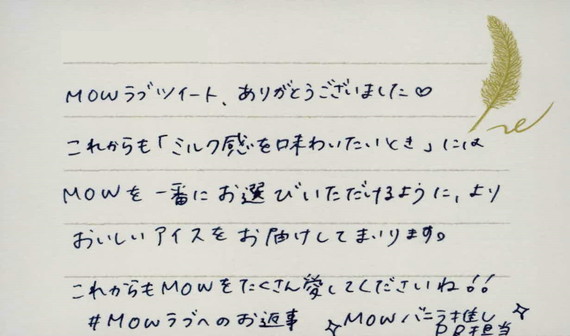 MOWラブツイート、ありがとうございました♡
これからも「ミルク感を味わいたいとき」には
MOWを一番にお選びいただけるように、より
おいしいアイスをお届けしてまいります。
これからもMOWをたくさん愛してくださいね!!
#MOWラブへのお返事
MOWバニラ推し
PR担当